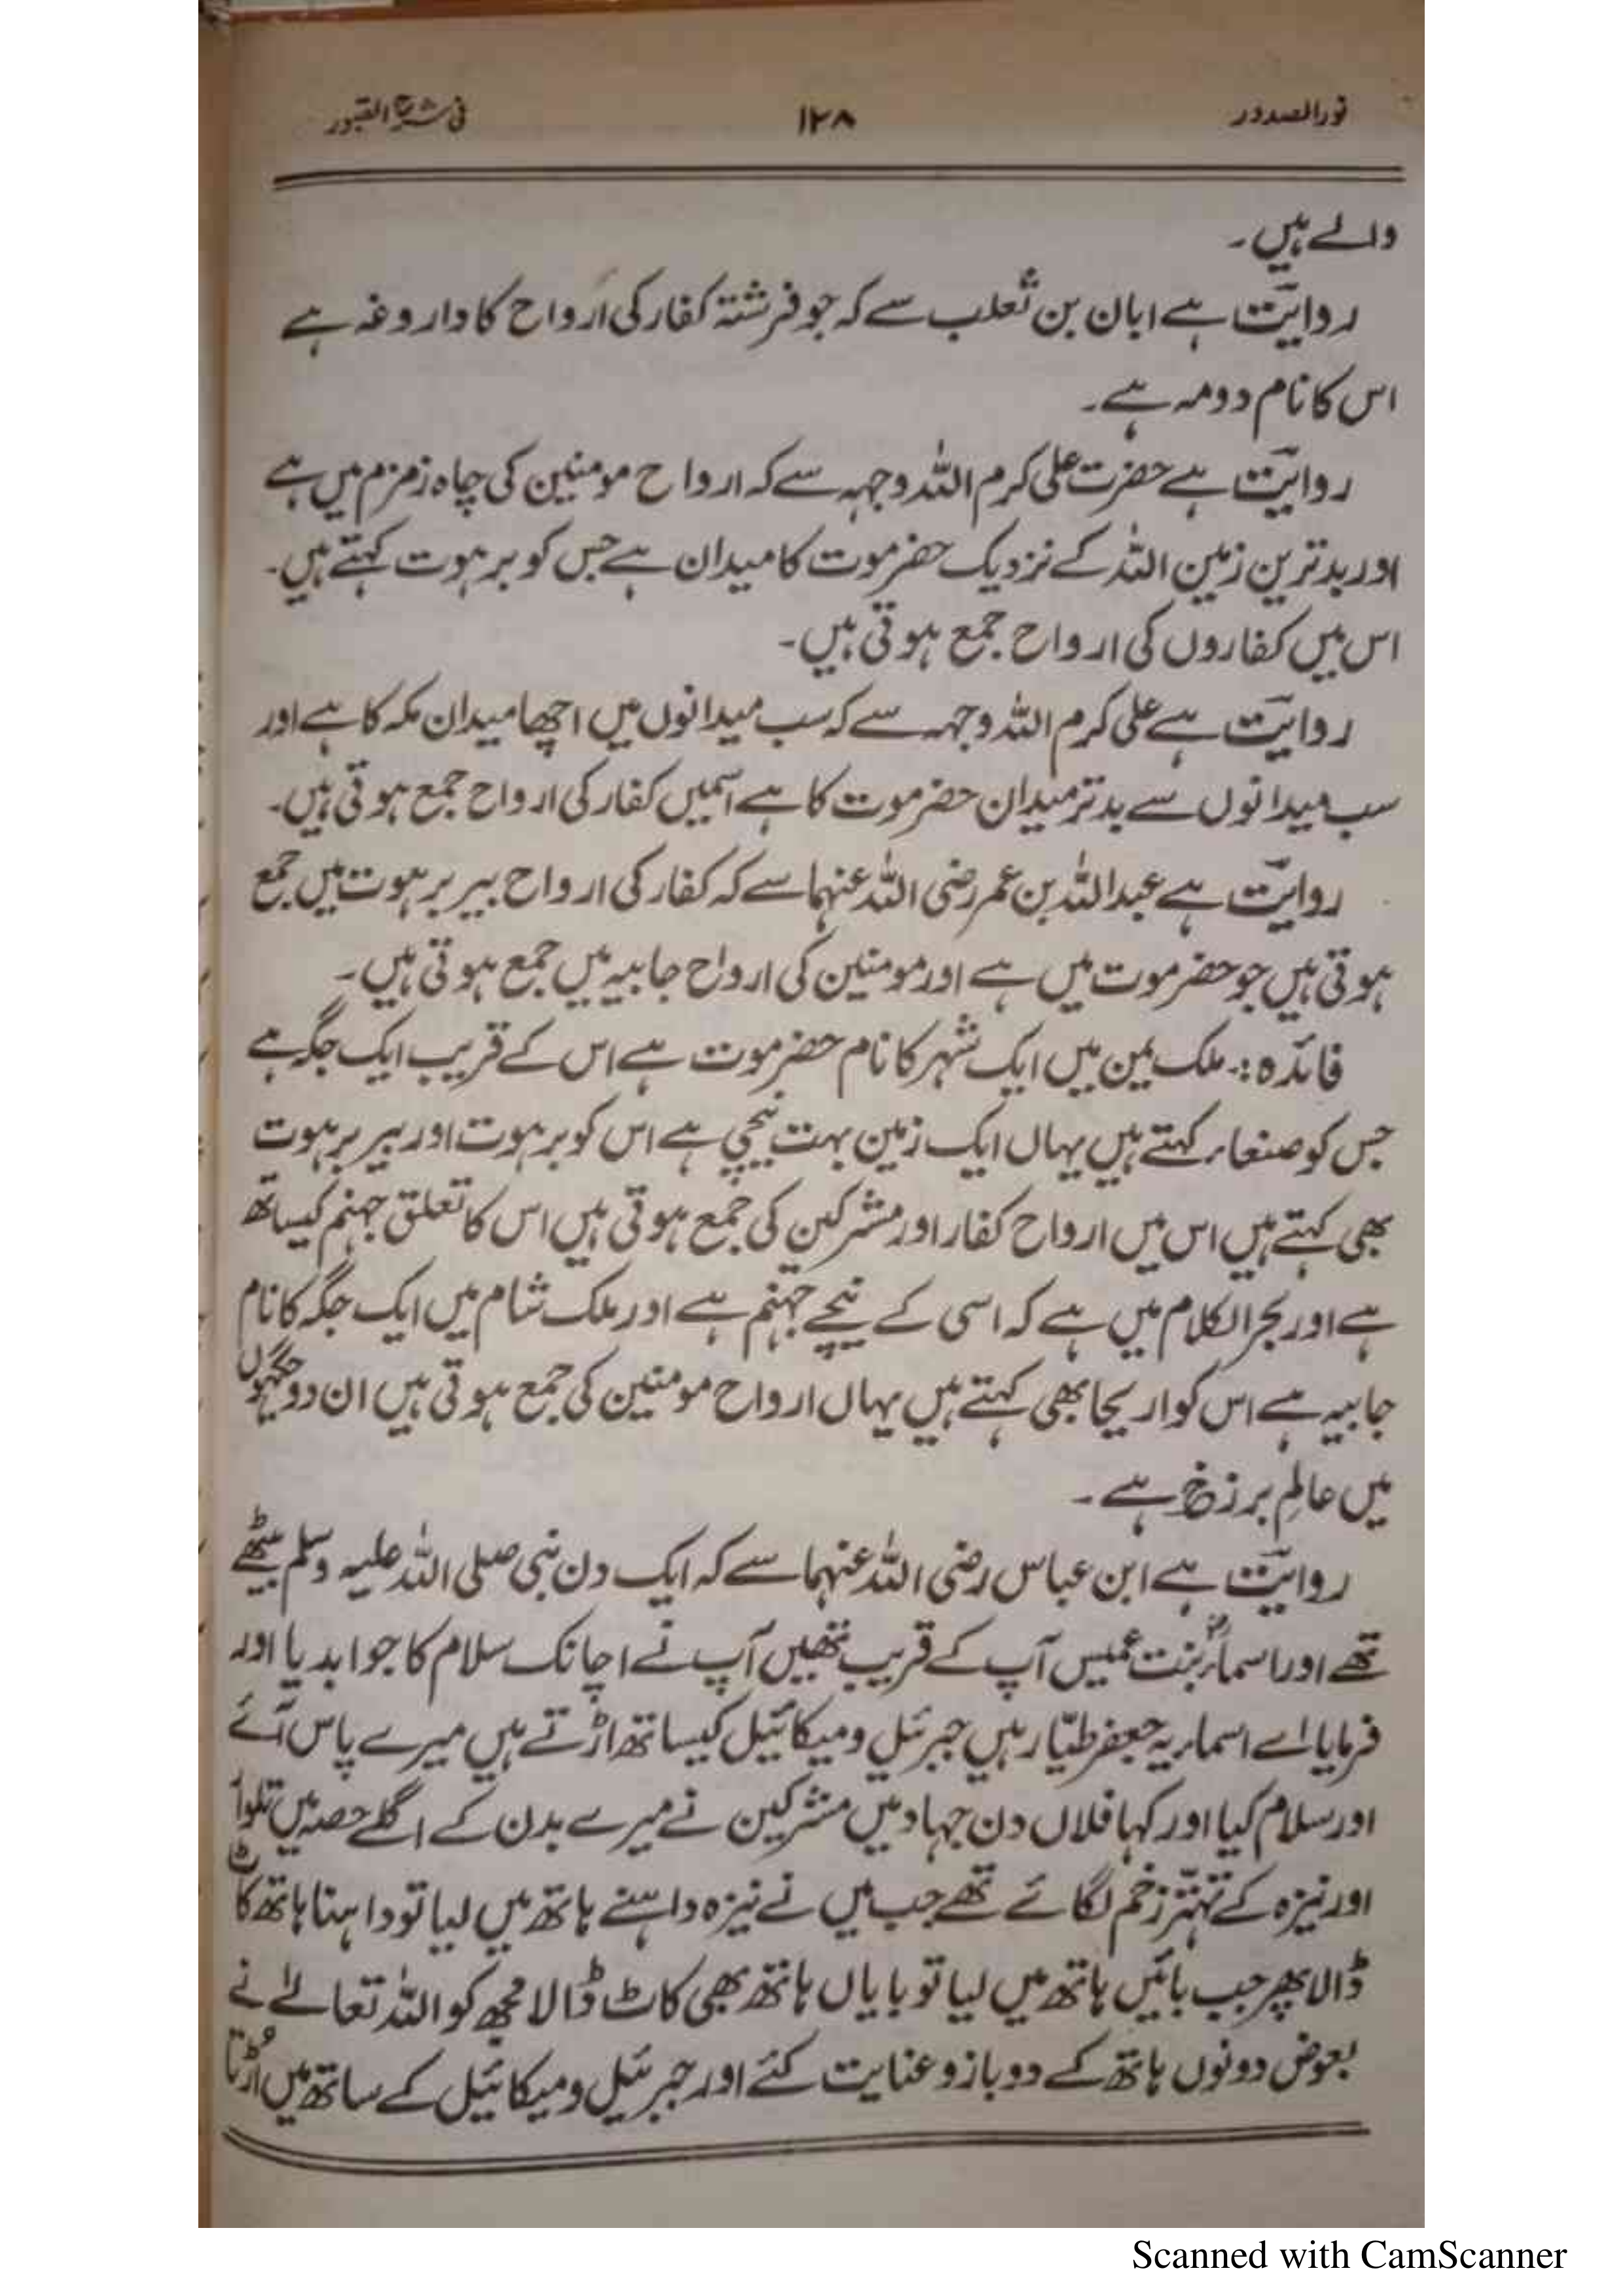 نورالصدور ۱۲۸ فی شرح القبور
والے ہیں۔
روایت ہے ابان بن ثعلب سے کہ جو فرشتہ کفار کی ارواح کا داروغہ ہے
اس کا نام دومہ ہے۔
روایت ہے حضرت علی کرم اللہ وجہہ سے کہ ارواح مومنین کی چاہ زمزم میں ہے
اور بدترین زمین اللہ کے نزدیک حضرموت کا میدان ہے جس کو برہوت کہتے ہیں۔
اس میں کفاروں کی ارواح جمع ہوتی ہیں۔
روایت ہے علی کرم اللہ وجہہ سے کہ سب میدانوں میں اچھا میدان مکہ کا ہے اور
سب میدانوں سے بدتر میدان حضرموت کا ہے اسمیں کفار کی ارواح جمع ہوتی ہیں۔
روایت ہے عبداللہ بن عمر رضی اللہ عنہما سے کہ کفار کی ارواح بیر برہوت میں جمع
ہوتی ہیں جو حضرموت میں ہے اور مومنین کی ارواح جابیہ میں جمع ہوتی ہیں۔
فائدہ :۔ ملک یمن میں ایک شہر کا نام حضرموت ہے اس کے قریب ایک جگہ ہے
جس کو صنعاء کہتے ہیں یہاں ایک زمین بہت نیچی ہے اس کو برہوت اور بیر برہوت
بھی کہتے ہیں اس میں ارواح کفار اور مشرکین کی جمع ہوتی ہیں اس کا تعلق جہنم کیساتھ
ہے اور بحر الکلام میں ہے کہ اسی کے نیچے جہنم ہے اور ملک شام میں ایک جگہ کا نام
جابیہ ہے اس کو اریحا بھی کہتے ہیں یہاں ارواح مومنین کی جمع ہوتی ہیں ان دو جگہوں
میں عالم برزخ ہے۔
روایت ہے ابن عباس رضی اللہ عنہما سے کہ ایک دن نبی صلی اللہ علیہ وسلم بیٹھے
تھے اور اسماءؓ بنت عمیس آپ کے قریب تھیں آپ نے اچانک سلام کا جوابدیا اور
فرمایا اے اسماء یہ جعفر طیّار ہیں جبرئیل و میکائیل کیساتھ اڑتے ہیں میرے پاس آئے
اور سلام کیا اور کہا فلاں دن جہاد میں مشرکین نے میرے بدن کے اگلے حصہ میں تلوار
اور نیزہ کے تہتّر زخم لگائے تھے جب میں نے نیزہ داہنے ہاتھ میں لیا تو داہنا ہاتھ کاٹ
ڈالا پھر جب بائیں ہاتھ میں لیا تو بایاں ہاتھ بھی کاٹ ڈالا مجھ کو اللہ تعالےٰ نے
بعوض دونوں ہاتھ کے دو بازو عنایت کئے اور جبرئیل و میکائیل کے ساتھ میں اُڑتا
Scanned with CamScanner